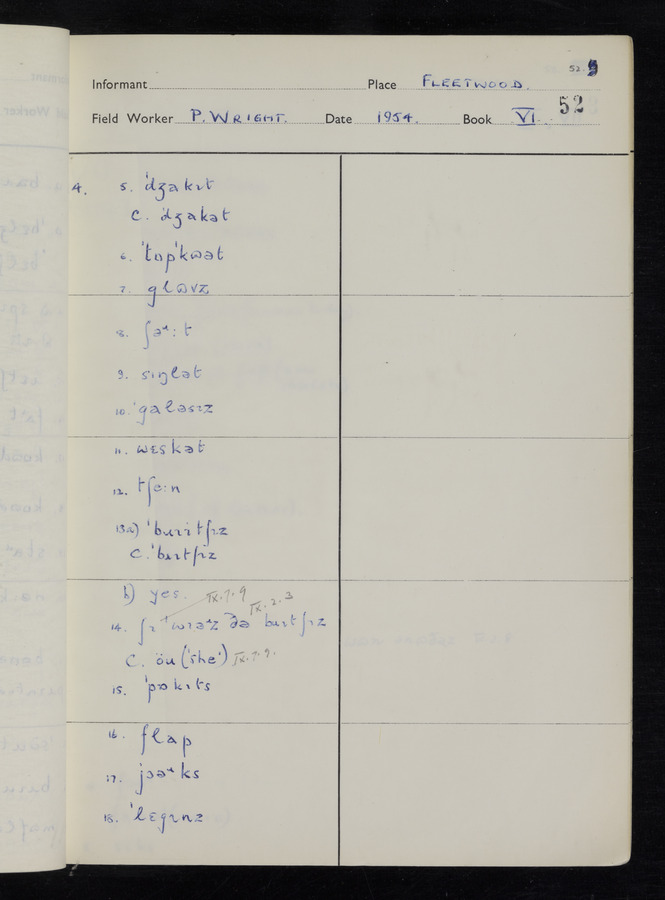 52. 9
Informant Place FLEETWOOD.
52
Field Worker P. WRIGHT. Date 1954. Book VI.
4. 5. 'dʒakɪt
C. 'dʒakət
6. 'tɒp'kɷət
7. glɷvz
8. ʃəʴ:t
9. sɪŋlət
10. 'galəsɪz
11. wɛskət
12. tʃe:n
13a) 'bɹɪtʃɪz
C. 'bɹɪtʃɪz
b) yes. IX.7.9 IX.2.3
14. ʃɪ 'wɪəʴz ðə bɹɪtʃɪz
C. öu ('she') IX.7.9.
15. 'pɒkɪts
16. flap
17. jɔəʴks
18. 'lɛgɪnz